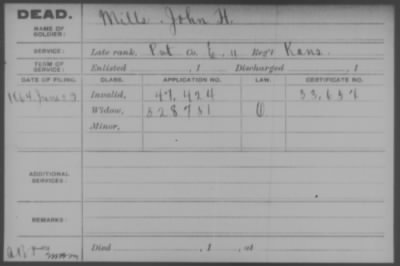 DEAD.
NAME OF SOLDIER: Mills John H.
SERVICE: Late rank, Pvt Co. E, 11 Reg't Kans.
TERM OF SERVICE: Enlisted , 1 Discharged , 1
DATE OF FILING. CLASS. APPLICATION NO. LAW. CERTIFICATE NO.
1864 June 23 Invalid, 47,424 33,637
Widow, 528731
Minor,
ADDITIONAL SERVICES:
REMARKS:
Died , 1 , at